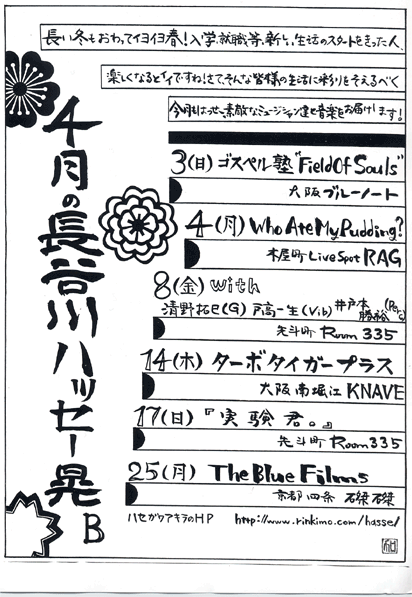 長い冬もおわってイヨイヨ春!入学、就職等、新しい生活のスタートをきった人、
楽しくなるとイイですね!さて、そんな皆様の生活に彩りをそえるべく
今月もはっせー、素敵なミュージシャン達と音楽をお届けします!
4月の長谷川ハッセー晃 B
3(日) ゴスペル塾"Field Of Souls"
大阪ブルーノート
4(月) Who Ate My Pudding?
木屋町 Live Spot RAG
8(金) with
清野拓巳(G) 戸高一生(Vib) 井戸本勝裕(Perc)
先斗町 Room 335
14(木) ターボタイガープラス
大阪 南堀江 KNAVE
17(日) 『実験君。』
先斗町 Room 335
25(月) The Blue Films
京都 四条 磔磔
ハセガワアキラのHP http://www.rinkimo.com/hasse/